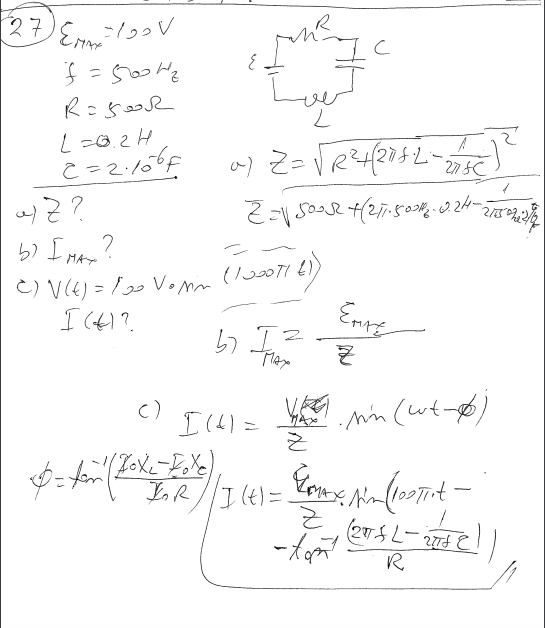 27) ℰMAX = 100V
f = 500Hz
R = 500Ω
L = 0.2H
C = 2·10⁻⁶F
R
ℰ
C
L
a) Z?
b) IMAX?
c) V(t) = 100 V · sin (1000π t)
I(t)?
a) Z = √(R² + (2πfL - 1/(2πfC))²
Z = √500Ω + (2π·500Hz·0.2H - 1/
b) IMAX = ℰMAX / Z
c) I(t) = VMAX / Z · sin (ωt - φ)
φ = tan⁻¹ (I₀XL - I₀XC / I₀R)
I(t) = ℰMAX / Z · sin (100π·t -
- tan⁻¹ (2πfL - 1/(2πfC)) / R )